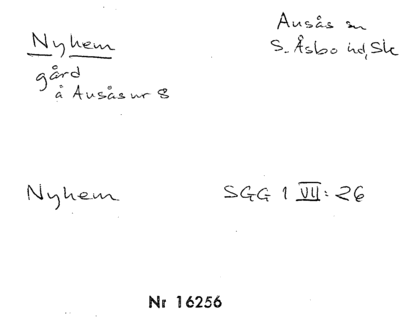 Nyhem
Ausås sn
S. Åsbo hd, Sk
gård
å Ausås nr 8
Nyhem
SGG 1 VII: 26
Nr 16256